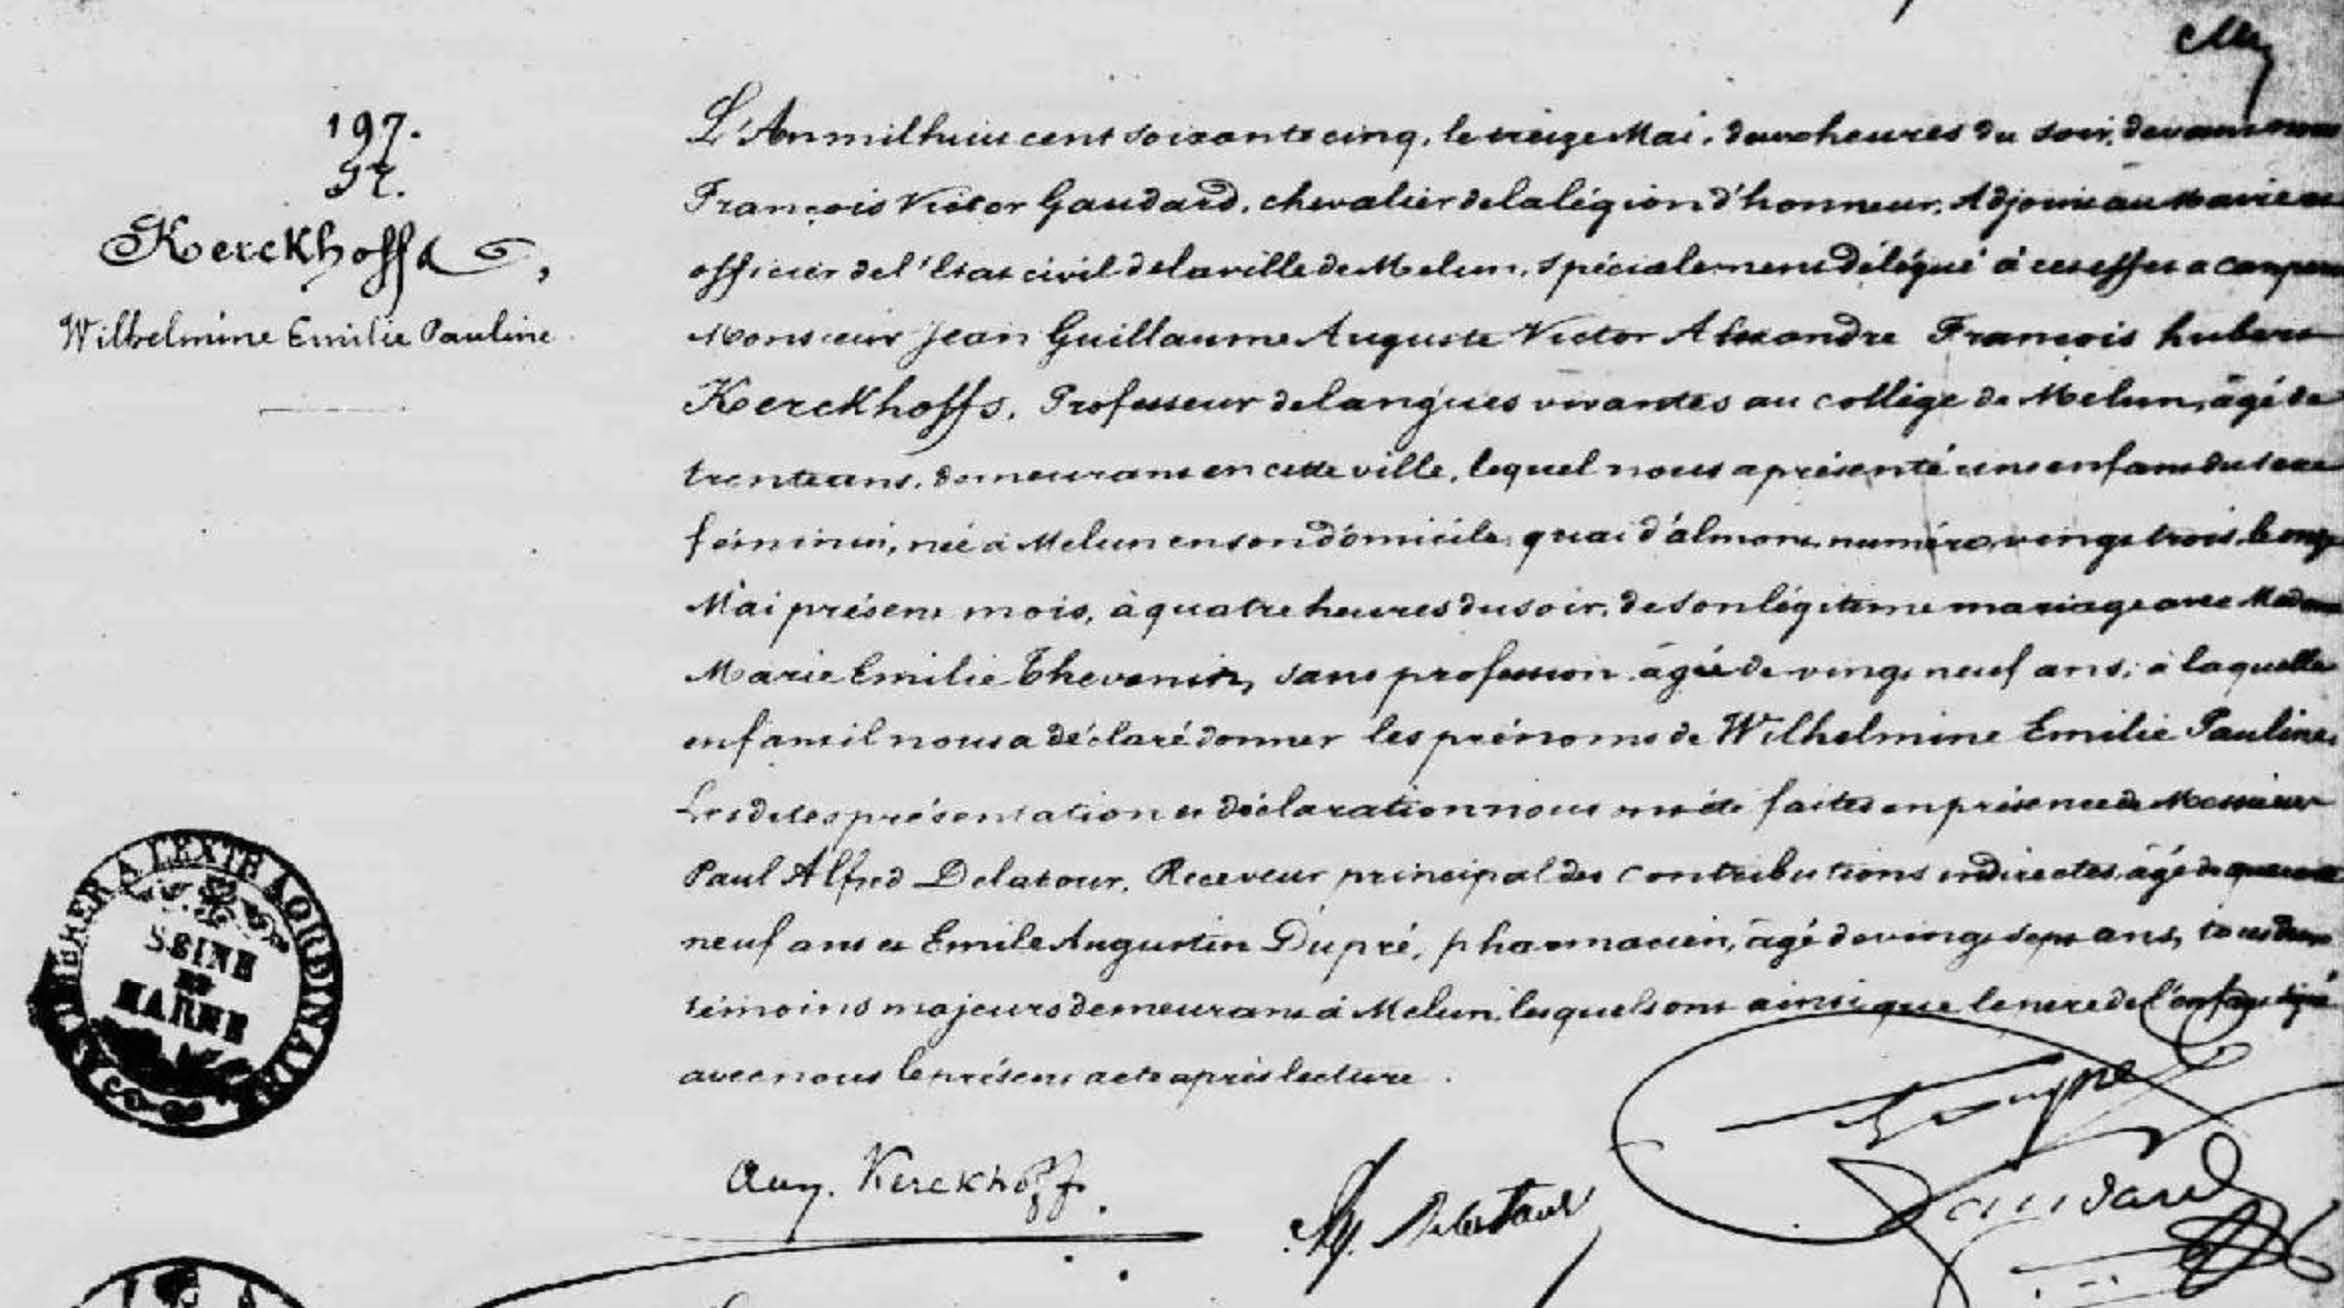 197.
Kerckhoffs,
Wilhelmine Emilie Pauline
L'An mil huit cent soixante cinq, le treize Mai, deux heures du soir, devant nous
François Victor Gaudard, chevalier de la légion d'honneur, Adjoint au Maire et
officier de l'état civil de la ville de Melun, spécialement délégué à cet effet a comparu
Monsieur Jean Guillaume Auguste Victor Alexandre François hubert
Kerckhoffs, Professeur de langues vivantes au collège de Melun, âgé de
trente ans, demeurant en cette ville, lequel nous a présenté une enfant du sexe
féminin, née à Melun en son domicile, quai d'almont, numéro vingt trois, le onze
Mai présent mois, à quatre heures du soir, de son légitime mariage avec Madame
Marie Emilie Thevenin, sans profession âgée de vingt neuf ans; à laquelle
enfant il nous a déclaré donner les prénoms de Wilhelmine Emilie Pauline.
Les dites présentation et déclaration nous ont été faites en présence de Messieurs
Paul Alfred Delatour, Receveur principal des contributions indirectes, âgé de quarante
neuf ans et Emile Augustin Dupré, pharmacien, âgé de vingt sept ans, tous deux
témoins majeurs demeurant à Melun, lesquels ont ainsi que le père de l'enfant signé
avec nous le présent acte après lecture.
A TIMBRER A L'EXTRAORDINAIRE
SEINE
ET
MARNE
Aug. Kerckhoffs.
Delatour
Dupré
Gaudard